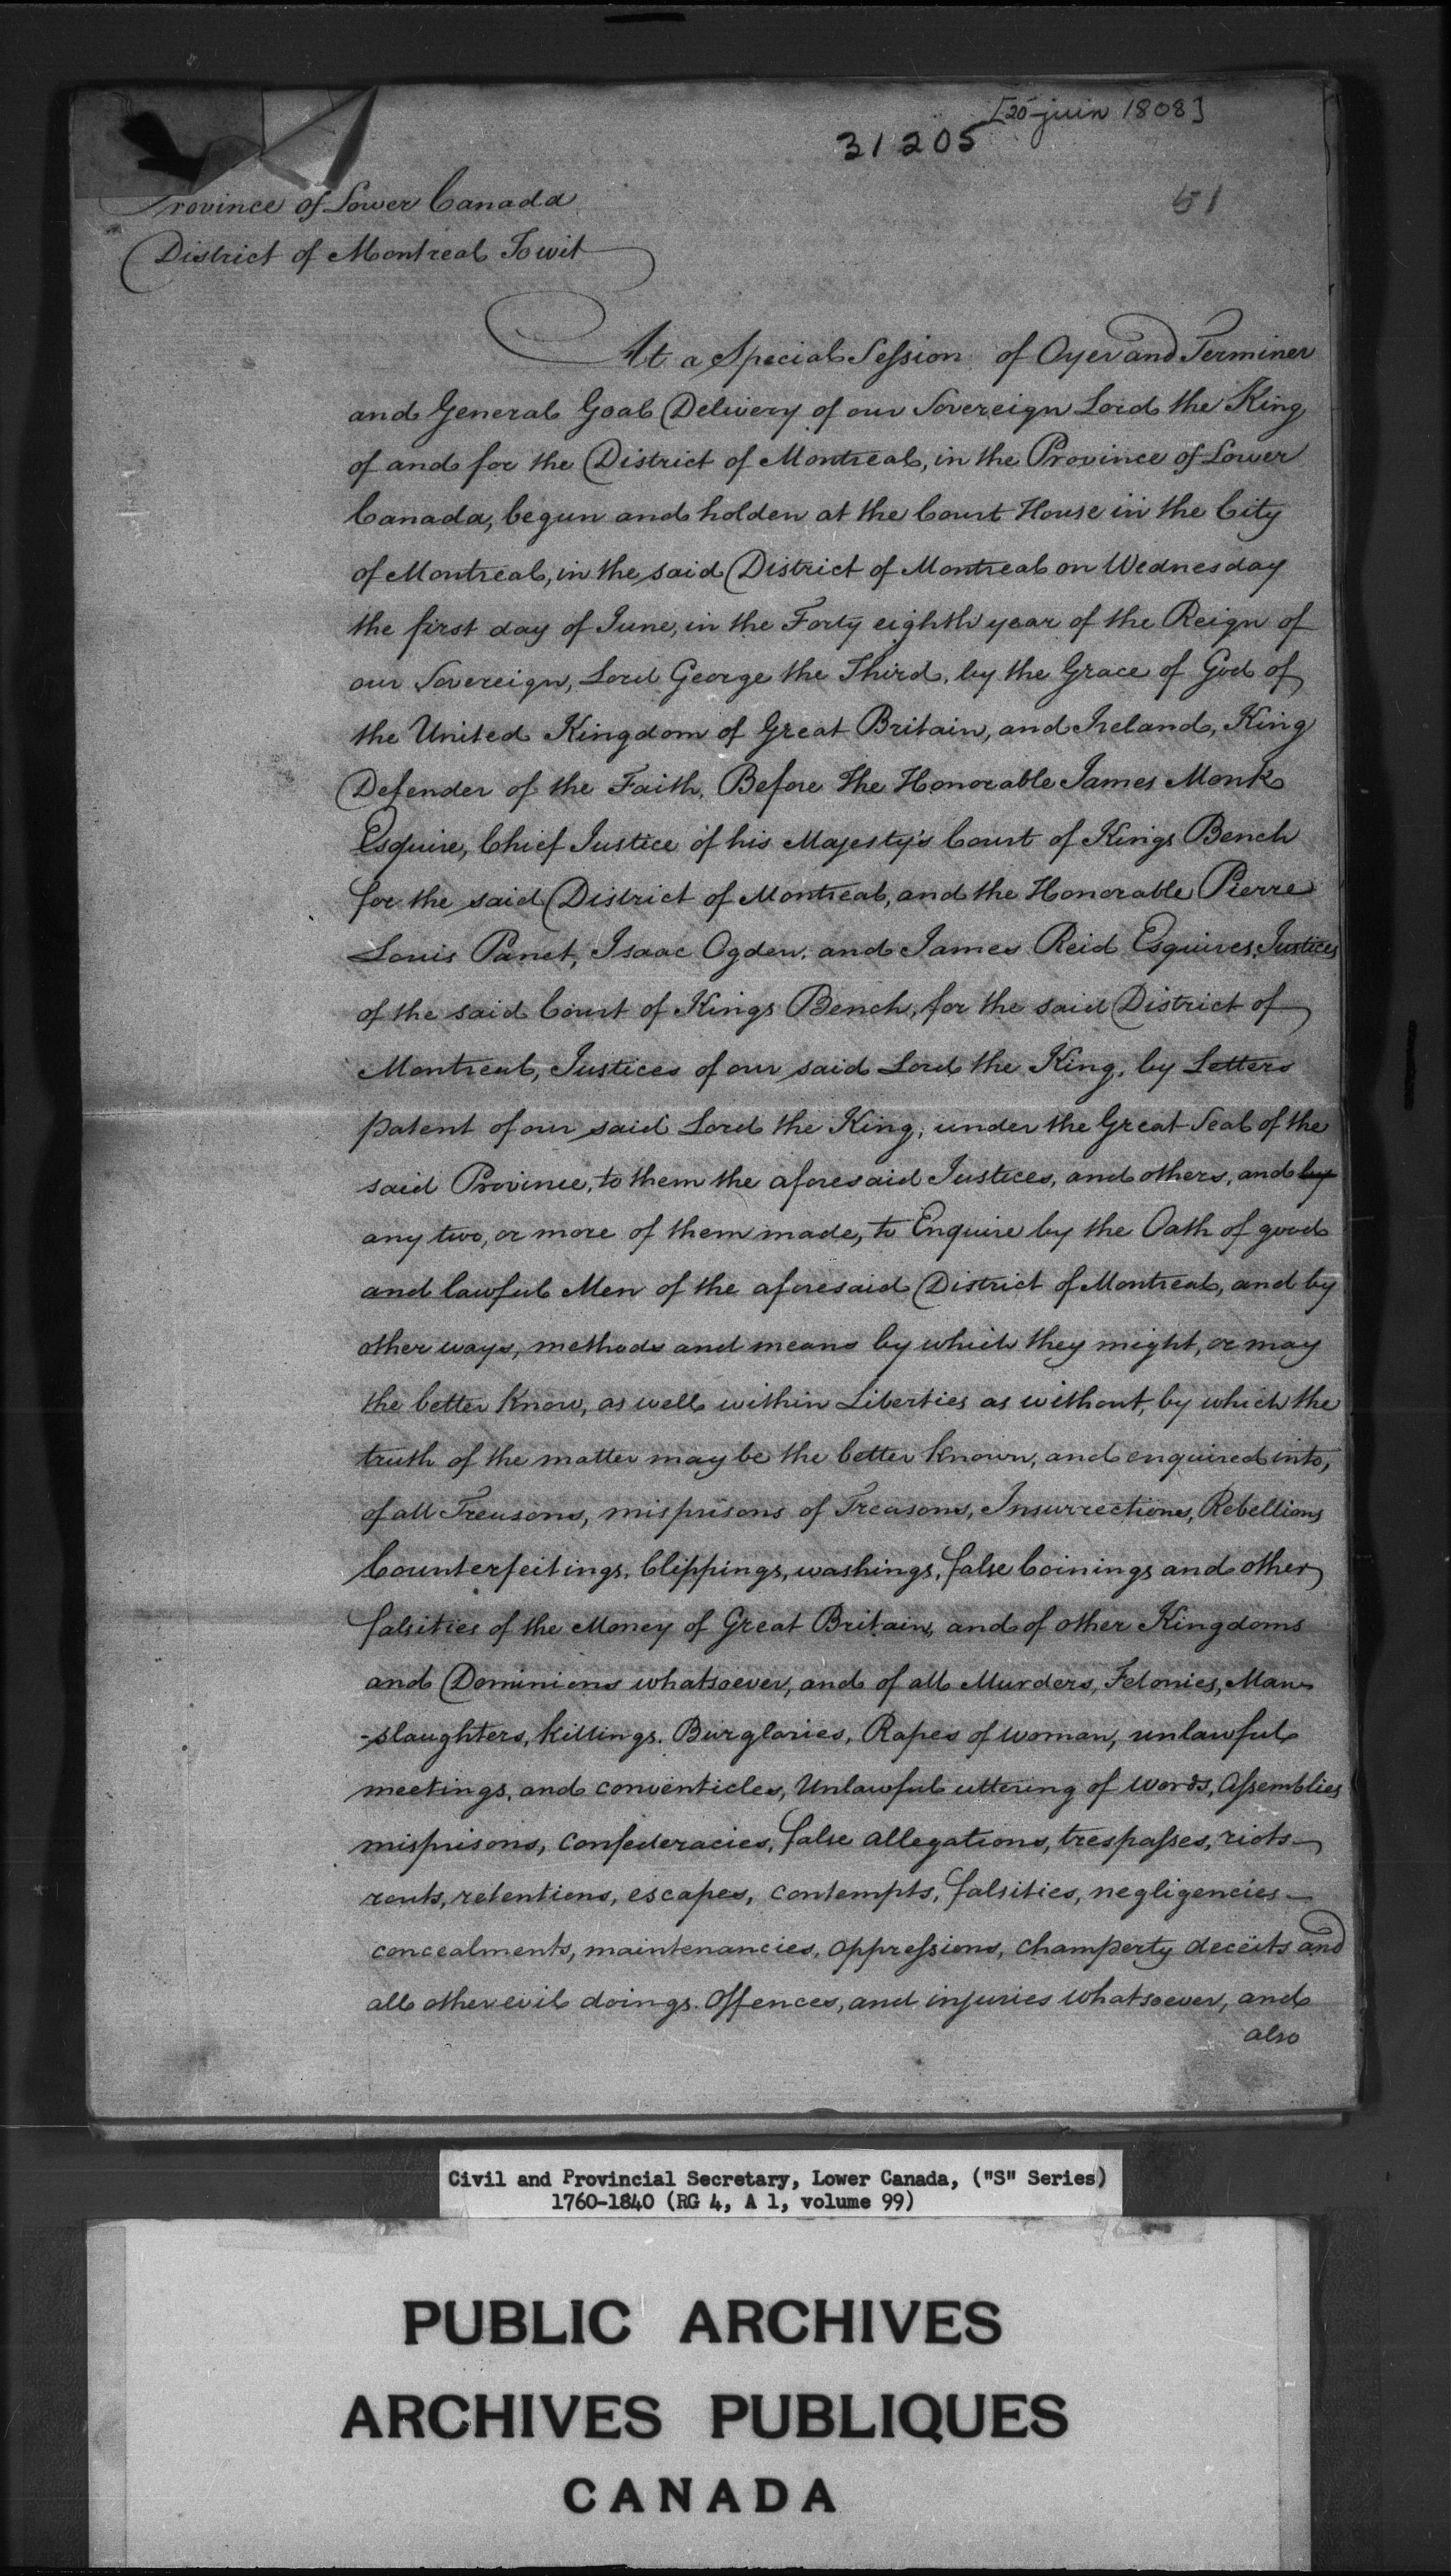 [25 juin 1808]
31205
51
Province of Lower Canada
District of Montreal Towit
At a Special Session of Oyer and Terminer
and General Goal Delivery of our Sovereign Lord the King
of and for the District of Montreal, in the Province of Lower
Canada, begun and holden at the Court House in the City
of Montreal, in the said District of Montreal on Wednesday
the first day of June, in the Forty eighth year of the Reign of
our Sovereign, Lord George the Third, by the Grace of God of
the United Kingdom of Great Britain, and Ireland, King
Defender of the Faith, Before The Honorable James Monk
Esquire, Chief Justice of his Majesty's Court of Kings Bench
for the said District of Montreal, and the Honorable Pierre
Louis Panet, Isaac Ogden, and James Reid Esquires, Justices
of the said Court of Kings Bench, for the said District of
Montreal, Justices of our said Lord the King, by Letters
patent of our said Lord the King, under the Great Seal of the
said Province, to them the aforesaid Justices, and others, and by
any two, or more of them made, to Enquire by the Oath of good
and lawful Men of the aforesaid District of Montreal, and by
other ways, methods and means by which they might, or may
the better know, as well within Liberties as without, by which the
truth of the matter may be the better known, and enquired into,
of all Treasons, misprisons of Treasons, Insurrections, Rebellions
Counterfeitings, Clippings, washings, false Coinings and other
falsities of the Money of Great Britain, and of other Kingdoms
and Dominions whatsoever, and of all Murders, Felonies, Man
-slaughters, killings. Burglaries, Rapes of woman, unlawful
meetings, and conventicles, Unlawful uttering of words, Assemblies
misprisons, confederacies, false allegations, trespasses, riots
routs, retentions, escapes, contempts, falsities, negligencies
concealments, maintenancies, oppressions, champerty deceits and
all other evil doings. Offences, and injuries whatsoever, and
also
Civil and Provincial Secretary, Lower Canada, ("S" Series)
1760-1840 (RG 4, A 1, volume 99)
PUBLIC ARCHIVES
ARCHIVES PUBLIQUES
CANADA